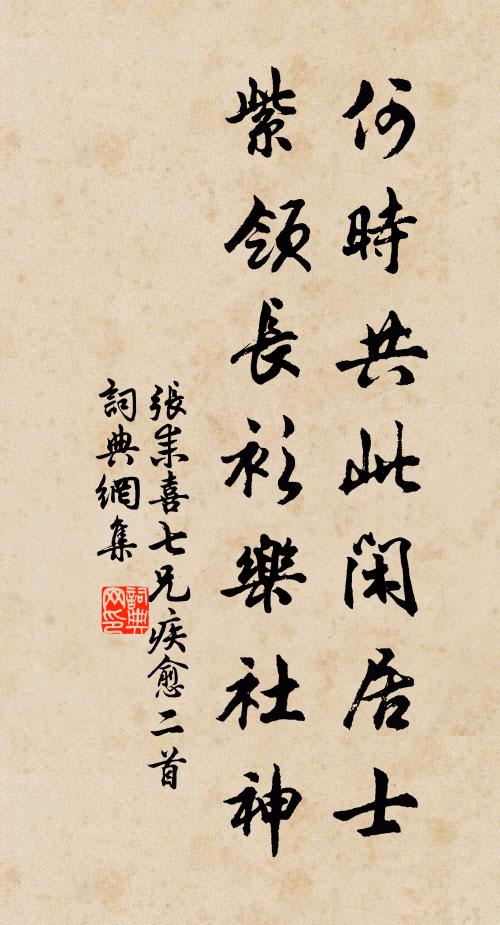 何時共此閑居士
紫領長衫樂社神
張耒喜七兄疾愈二首
詞典網集
詞典网印